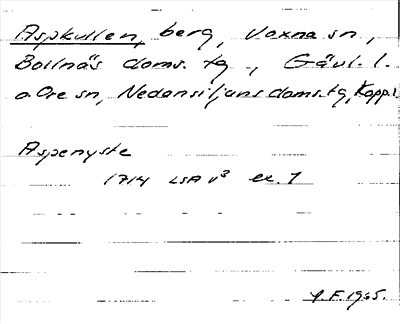 Aspkullen, berg, Voxna sn,
Bollnäs doms. tg., Gävl. l.
o. Ore sn, Nedansiljans doms. tg, Kopp. l.
Aspenyste
1714 LSA V³ ex. 1
1965.